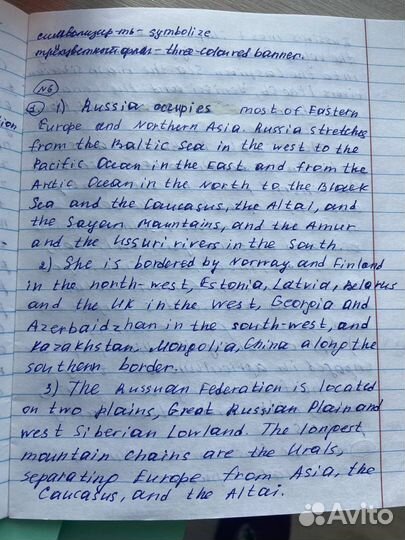 символизир-ть - symbolize
трёхцветный флаг - three-coloured banner.
№6
1) Russia occupies most of Eastern
Europe and Northern Asia. Russia stretches
from the Baltic Sea in the west to the
Pacific Ocean in the East and from the
Arctic Ocean in the North to the Black
Sea and the Caucasus, the Altai, and
the Sayan Mountains, and the Amur
and the Ussuri rivers in the South.
2) She is bordered by Norway and Finland
in the north-west, Estonia, Latvia, Belarus
and the UK in the west, Georgia and
Azerbaidzhan in the south-west, and
Kazakhstan, Mongolia, China along the
southern border.
3) The Russuan Federation is located
on two plains, Great Russian Plain and
West Siberian Lowland. The longest
mountain chains are the Urals,
separating Europe from Asia, the
Caucasus, and the Altai.
ion
Avito